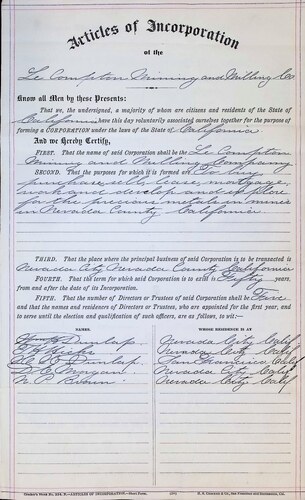 Articles of Incorporation
of the
Le Compton Mining and Milling Co
Know all Men by these Presents:
That we, the undersigned, a majority of whom are citizens and residents of the State of
California have this day voluntarily associated ourselves together for the purpose of
forming a CORPORATION under the laws of the State of California
And we Hereby Certify,
FIRST. That the name of said Corporation shall be Le Compton
Mining and Milling Company
SECOND. That the purposes for which it is formed are To buy
purchase, sell, lease, mortgage,
work and develop and explore
for the precious metals in mines
in Nevada County California
THIRD. That the place where the principal business of said Corporation is to be transacted is
Nevada City Nevada County California
FOURTH. That the term for which said Corporation is to exist is Fifty years,
from and after the date of its Incorporation.
FIFTH. That the number of Directors or Trustees of said Corporation shall be Five
and that the names and residences of Directors or Trustees, who are appointed for the first year, and
to serve until the election and qualification of such officers, are as follows, to wit:
NAMES. WHOSE RESIDENCE IS AT
Dunlap Nevada City Calif
Nevada City Calif
Dunlap San Francisco Calif
D. E. Morgan Nevada City Calif
N. P. Brown Nevada City Calif
ARTICLES OF INCORPORATION